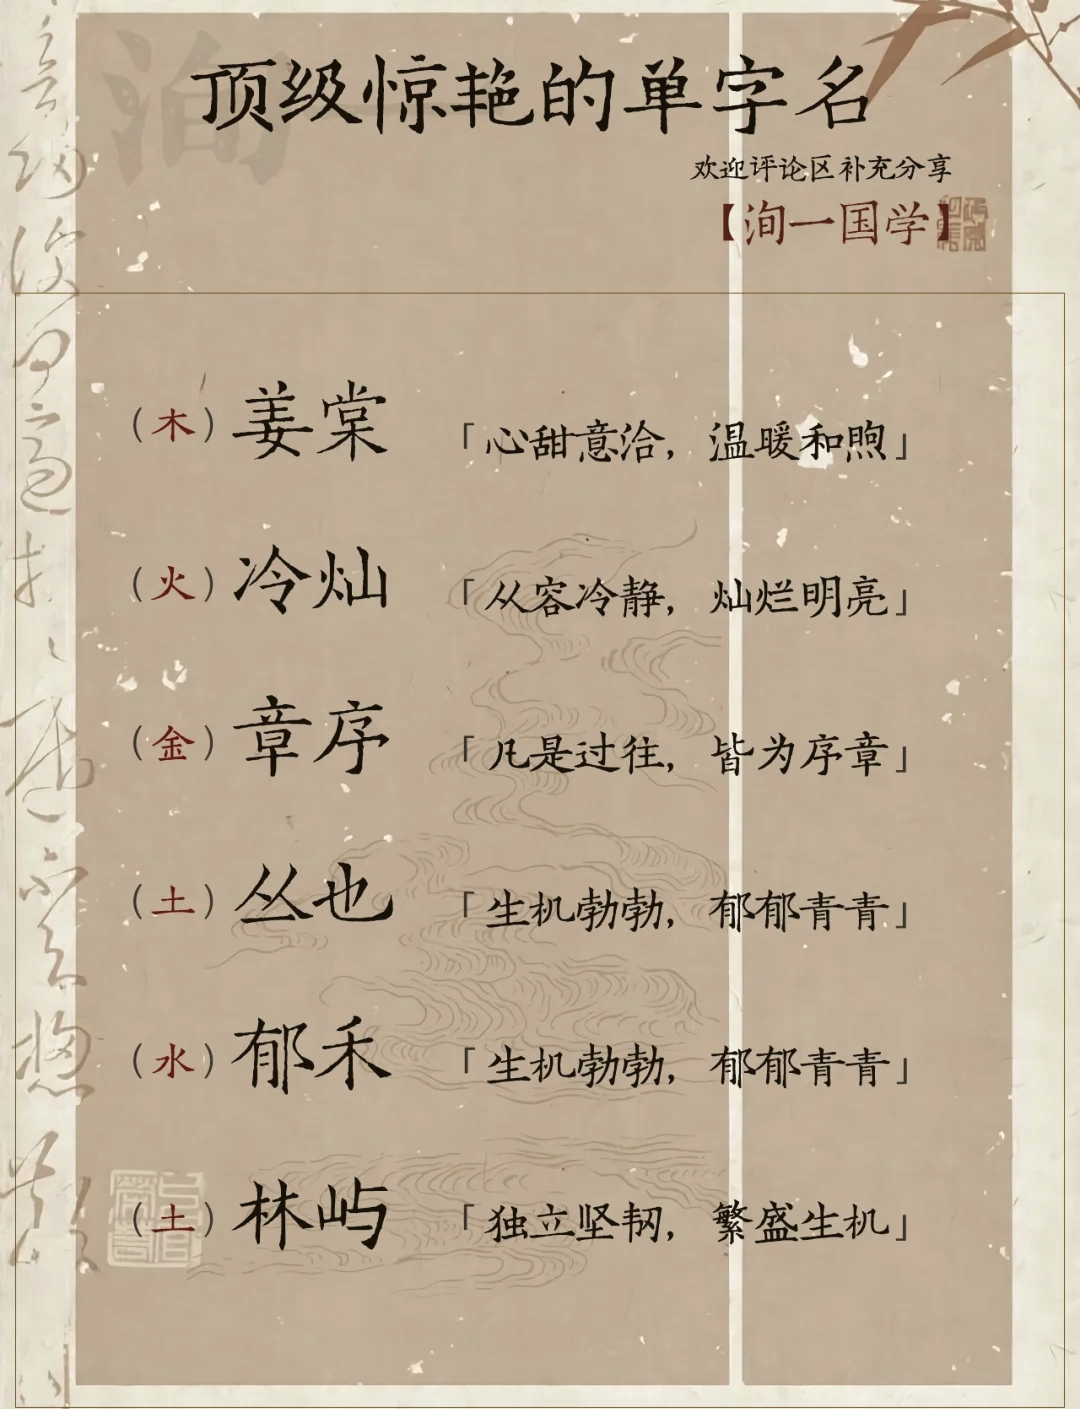 顶级惊艳的单字名
欢迎评论区补充分享
【洵一国学】
（木）姜棠「心甜意洽，温暖和煦」
（火）冷灿「从容冷静，灿烂明亮」
（金）章序「凡是过往，皆为序章」
（土）丛也「生机勃勃，郁郁青青」
（水）郁禾「生机勃勃，郁郁青青」
（土）林屿「独立坚韧，繁盛生机」
洵